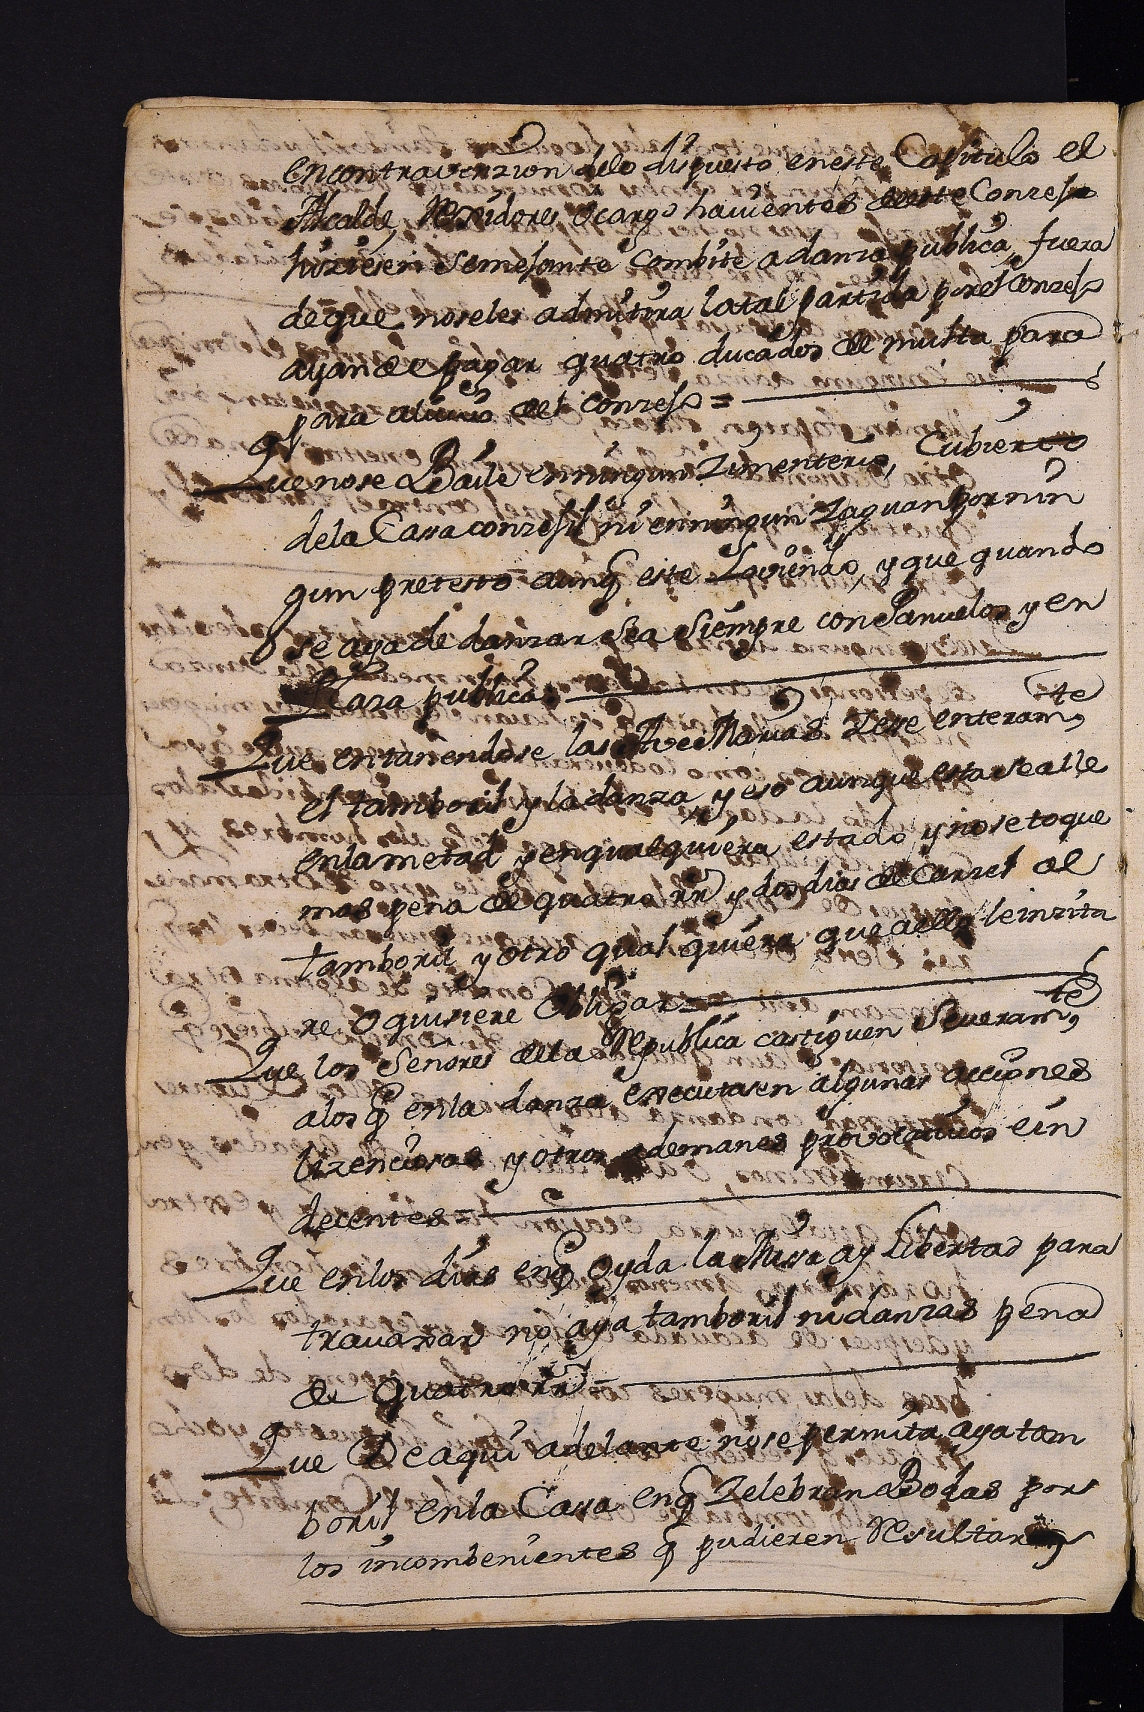 encontravenzion delo dispuesto eneste Capitulo el
Alcalde, Rexidores, o cargo havientes deeste Conzejo
hiziesen semejante combite a danza publica, fuera
deque noseles admitira latal partida porel Conzejo
ayan de pagar quatro ducados de multa para
para alivio del conzejo =
Que nose Baile enningun Zimenterio, Cubierto
dela Casa conzejil ni enningun Zaguan por nin
gun pretesto aunq este Loviendo, y que quando
se aya de danzar sea siempre con Panuelos y en
Plaza publica
Que entanendose las Ave Marias Zese enteramte
el tamboril y la danza y eso aunque esta sealle
enlametad y enqualquiera estado y nosetoque
mas pena de quatro rr y dos dias de Carzel al
tamboril y otro qual quiera que aello leinzita
re o quisiere obligar =
Que los Senores dela Republica castiguen Severamte
alos q enla danza executasen algunas acciones
lizenciosas y otros ademanes provocativos e in
decentes =
Que enlos dias enq oyda la Missa ay Libertad para
travaxar no aya tamboril ni danzas pena
de quatro rr =
Que De aqui adelante nose permita aya tam
boril enla Casa enq Zelebran Bodas por
los incombenientes q pudieren Resultar